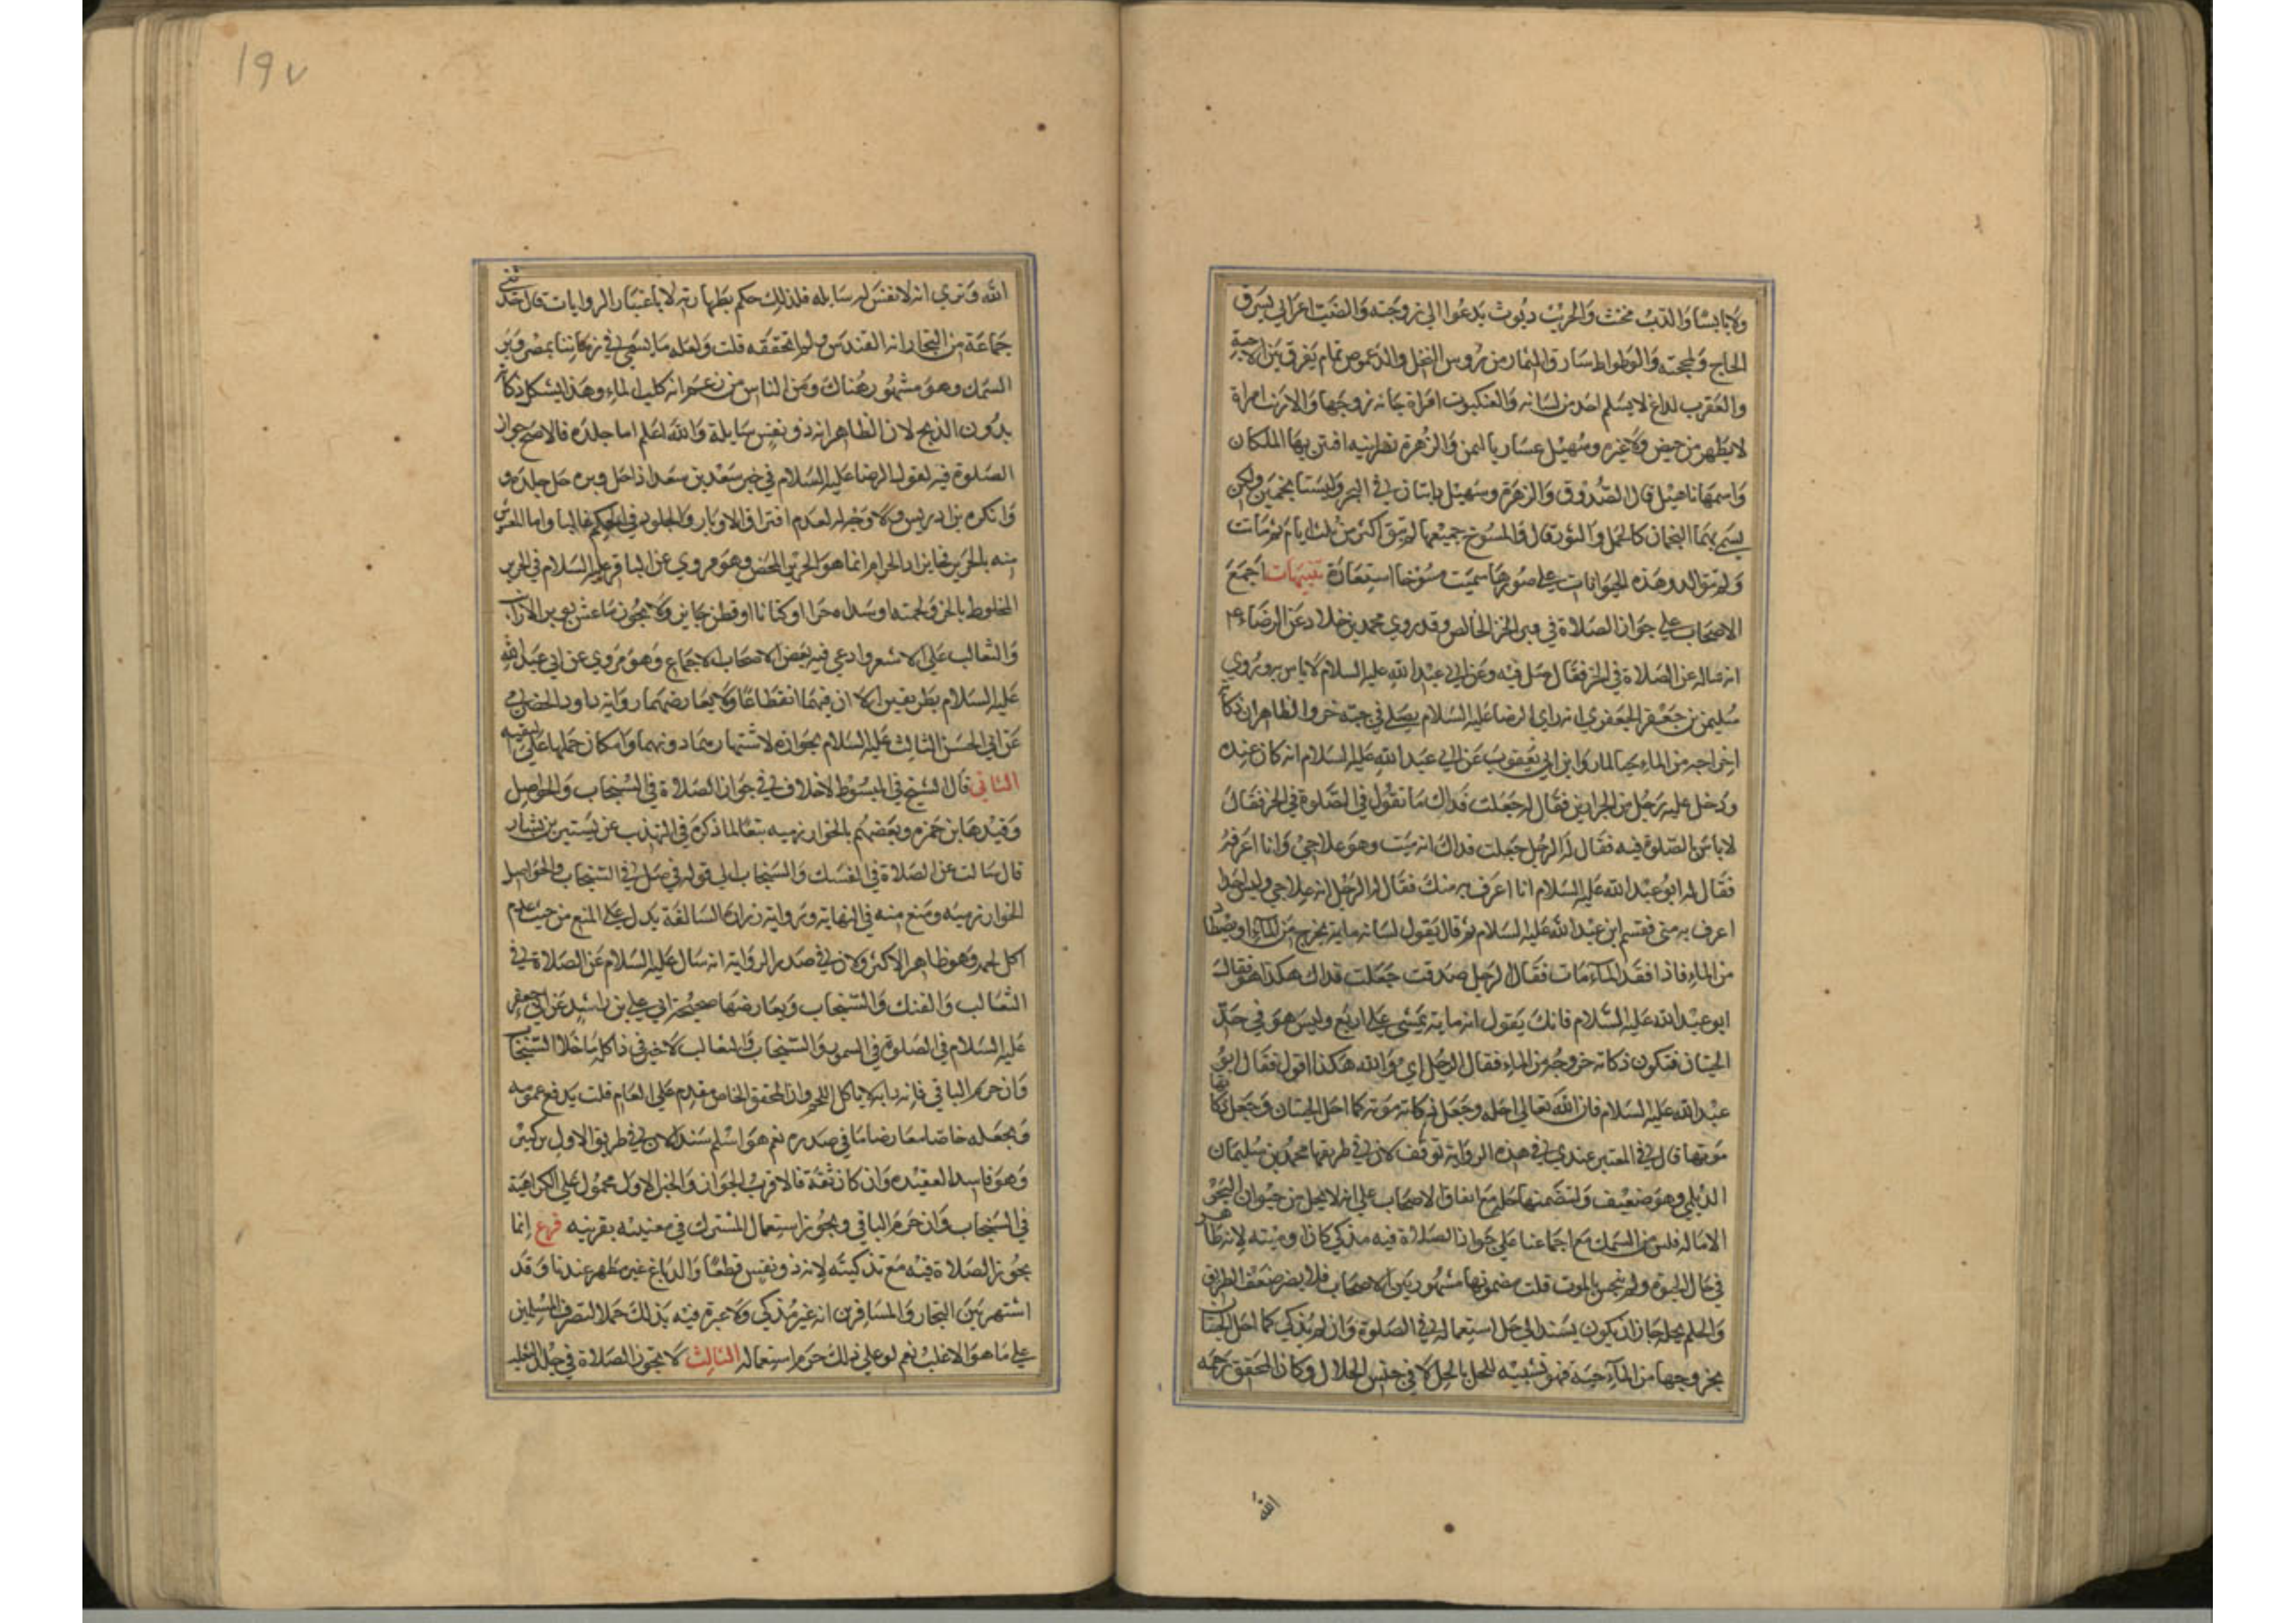 ولا يابسا والدب مخنث والجريث ديوث يدعوا الي زوجته والضب اعرابي يسرق
الحاج بمحجنه والوطواط سارق الثمار من رؤس النخل والدعموص نمام يفرق بين الاحبة
والعقرب لداغ لا يسلم احد من لسانه والعنكبوت امراة خانه زوجها والارنب امراة
لا يطهر من حيض ولا غيره وسهيل عشار باليمن والزهرة نصرانيه افتتن بها الملكان
واسمها ناهيل قال الصدوق والزهرة وسهيل دابتان في البحر وليستا بنجمين ولكن
يسمي بهما النجمان كالحمل والثور قال والمسوخ جميعها لم يبق اكثر من ثلثة ايام ثم مات
ولم تتوالد وهذه الحيوانات علي صورها سميت مسوخا استعارة تنبيهات اجمع
الاصحاب علي جواز الصلاة في وبر الخز الخالص وقد روي محمد بن خلاد عن الرضاء ع
انه ساله عن الصلاة في الخز فقال صل فيه وعن ابي عبد الله عليه السلام لا باس به وروي
سليمن بن جعفر الجعفري انه راي الرضا عليه السلام يصلي في جبة خز والظاهر ان ذكاته
اخراجه من الماء حيا لما روا ابن ابي يعقوب عن ابي عبد الله عليه السلام انه كان عنده
ودخل عليه رجل من الخزازين فقال له جعلت فداك ما تقول في الصلوة في الخز فقال
لا باس بالصلوة فيه فقال له الرجل جعلت فداك انه ميت وهو علاجي وانا اعرفه
فقال له ابو عبد الله عليه السلام انا اعرف به منك فقال له الرجل انه علاجي وليس احد
اعرف به مني فتبسم ابو عبد الله عليه السلام ثم قال يقول لسانه مايه تخرج من الماء او يصطاد
من الماء فاذا فقد الماء مات فقال الرجل صدقت جعلت فداك هكذا هو فقال
ابو عبد الله عليه السلام فانك يقول انه مايه تمشي علي اربع وليس هو في حد
الحيتان فتكون ذكاته خروجه من الماء فقال الرجل اي والله هكذا اقول فقال ابو
عبد الله عليه السلام فان الله تعالي احله وجعل ذكاته موته كما احل الحيتان وجعل ذكاتها
موتها قال في المعتبر عندي في هذه الرواية توقف لان في طريقها محمد بن سليمان
الديلمي وهو ضعيف ولتضمنها حله مع اتفاق الاصحاب علي انه لا يحل من حيوان البحر
الا ماله فلس من السمك مع اجماعنا علي جواز الصلاة فيه مذكي كان او ميته لانه طاهر
في حال الحيوة ولم ينجس بالموت قلت مضمونها مشهور بين الاصحاب فلا يضر ضعف الطريق
والحكم بحله جاز ان يكون يستند الي حل استعماله في الصلوة وان لم يذكي كما احل الحيتان
بخروجها من الماء حية فهو تشبيه للحل بالحل لا في جنس الحلال وكان المحقق رحمه
الله
١٩٧
الله وتري انه لا نفس له سايله فلذلك حكم بطهارته لا باعتبار الروايات قال حدثني
جماعة من التجار انه القندس ولم اتحققه قلت ولعله ما يسمي في زماننا بمصر وبر
السمك وهو مشهور هناك ومن الناس من زعم انه كلب الماء وهذا يشكل ذكاته
بدون الذبح لان الظاهر انه ذو نفس سايلة والله اعلم اما جلده فالاصح جواز
الصلوة فيه لقول الرضا عليه السلام في خبر سعد بن سعد اذا حل وبره حل جلده و
وانكره بن ادريس ولا وجه له لعدم افتراق الاوبار والجلود في الحكم غالبا واما
منه بالحرير فجايز اذ الحرام انما هو الحرير المحض وهو مروي عن الباقر عليه السلام في الحرير
المخلوط بالخز ولحمته او سداه خزا او كتانا او قطن جايز ولا يجوز ما غش بوبر الارانب
والثعالب علي الاشهر وادعي فيه بعض الاصحاب الاجماع وهو مروي عن ابي عبد الله
عليه السلام بطريقين الا ان فيهما انقطاعا ولا يعارضهما رواية داود الصرمي
عن ابي الحسن الثالث عليه السلام بجوازه لاشتهارهما دونهما وامكان حملها علي التقيه
الثاني قال الشيخ في المبسوط لا خلاف في جواز الصلاة في السنجاب والحواصل
وقيدها بن حمزه وبعضهم بالخوارزميه تبعا لما ذكره في التهذيب عن بشير بن بشار
قال سالت عن الصلاة في الفنك والسنجاب الي قوله في صل في السنجاب والحواصل
الخوارزميه ومنع منه في النهاية ورواية زرارة السالفة يدل علي المنع من حيث عدم
اكل لحمه وهو ظاهر الاكثر ولان في صدر الرواية انه سال عليه السلام عن الصلاة في
الثعالب والفنك والسنجاب ويعارضها صحيحة ابي علي بن راشد عن ابي جعفر
عليه السلام في الصلوة في السمور والسنجاب والثعالب لا خير في ذا كله ما خلا السنجاب
وان حرم الباقي فانه دابه لا ياكل اللحم واذ المحقق الخاص مقدم علي العام قلت يدفع عمومه
ويجعله خاصا معارضا ما في صدره نعم هو اسلم سندا لان في طريق الاول بن بكير
وهو فاسد العقيده وان كان ثقة فالاقرب الجواز والخبر الاول محمول علي الكراهية
في السنجاب وان حرم الباقي ويجوز استعمال المشترك في معنييه بقرينه فرع انما
يجوز الصلاة فيه مع تذكيته لانه ذو نفس قطعا والدباغ غير مطهر عندنا وقد
اشتهر بين التجار والمسافرين انه غير مذكي ولا عبرة فيه بذلك حملا لتصرف المسلمين
علي ما هو الاغلب نعم لو علي ذلك حرم استعماله الثالث لا يجوز الصلاة في جلد